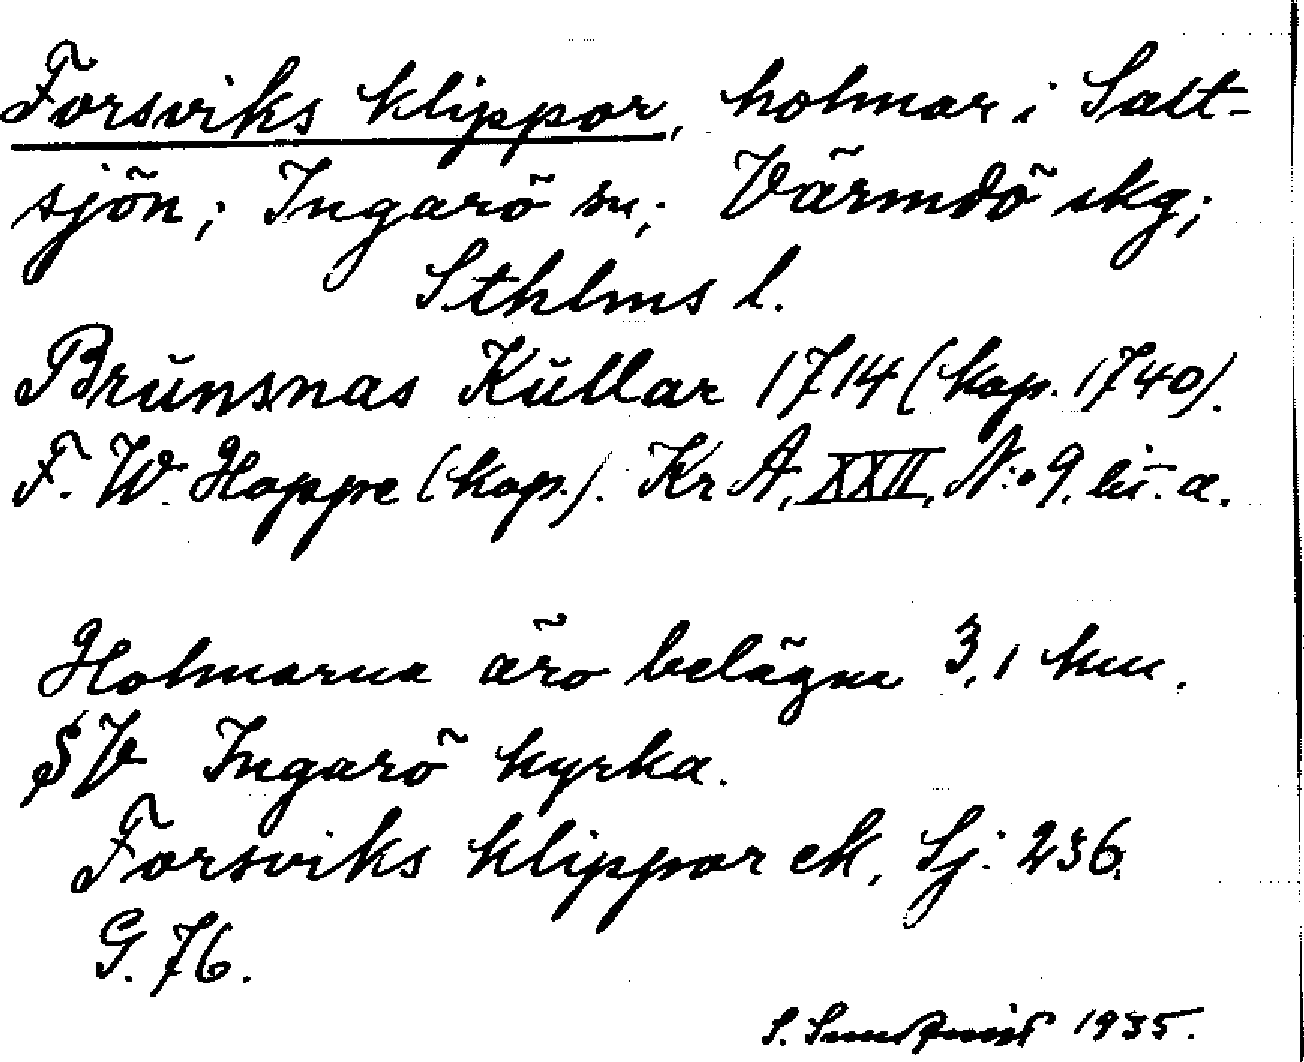 Forsviks klippor, holmar i Salt-
sjön; Ingarö sn; Värmdö skg;
Sthlms l.
Brunsnas Kullar 1714 (kop. 1740).
F. W. Hoppe (kop.). Kr A, XXII, N:o 9. lit. a.
Holmarna äro belägna 3,1 km.
SV Ingarö kyrka.
Forsviks klippor ek, Sj: 236.
G. 76.
S. Sundqvist 1935.